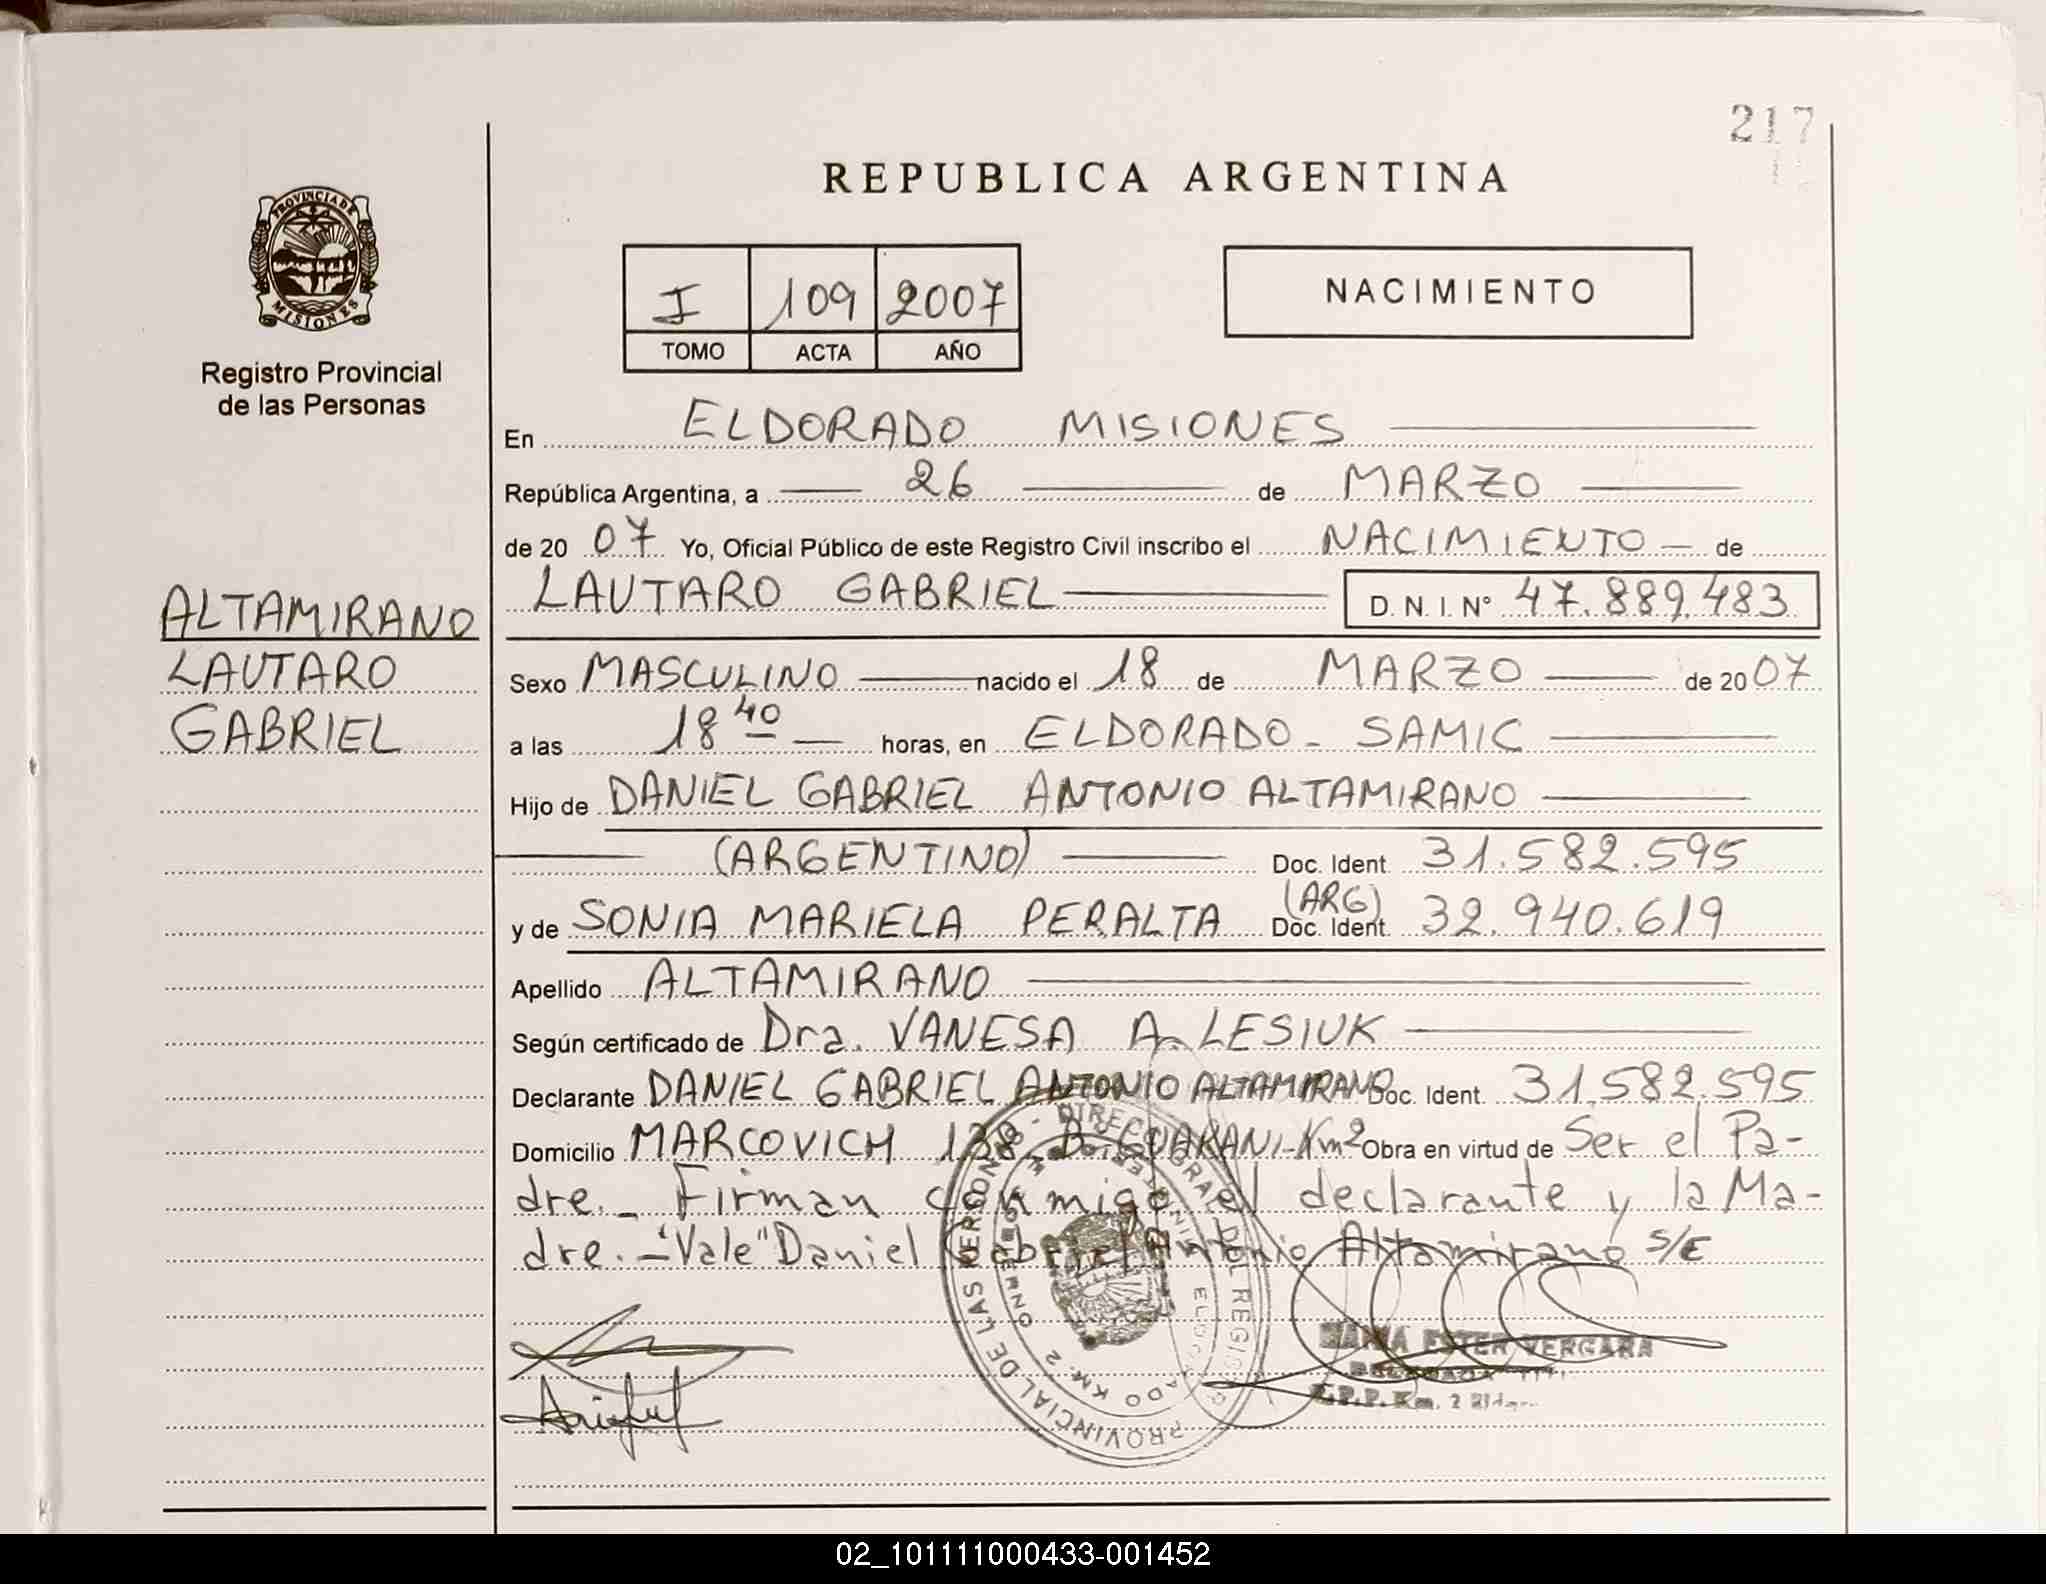 217
REPUBLICA ARGENTINA
PROVINCIA DE
MISIONES
Registro Provincial
de las Personas
I 109 2007
TOMO ACTA AÑO
NACIMIENTO
En ELDORADO MISIONES
República Argentina, a 26 de MARZO
de 20 07 Yo, Oficial Público de este Registro Civil inscribo el NACIMIENTO de
LAUTARO GABRIEL D.N.I. Nº 47.889.483
ALTAMIRANO
LAUTARO
GABRIEL
Sexo MASCULINO nacido el 18 de MARZO de 20 07
a las 18 40 horas, en ELDORADO - SAMIC
Hijo de DANIEL GABRIEL ANTONIO ALTAMIRANO
(ARGENTINO) Doc. Ident. 31.582.595
y de SONIA MARIELA PERALTA (ARG) Doc. Ident. 32.940.619
Apellido ALTAMIRANO
Según certificado de Dra. VANESA A. LESIUK
Declarante DANIEL GABRIEL ANTONIO ALTAMIRANO Doc. Ident. 31.582.595
Domicilio MARCOVICH 138 B. GUARANI-Km2 Obra en virtud de Ser el Pa-
dre.- Firman conmigo el declarante y la Ma-
dre.- "Vale" Daniel Gabriel Antonio Altamirano S/E
PROVINCIAL DE LAS PERSONAS - DIRECC GRAL DEL REGISTRO
ELDORADO KM. 2
MARIA ESTER VERGARA
DELEGADA TIT.
R.P.P. Km. 2 Eldo.
02_101111000433-001452